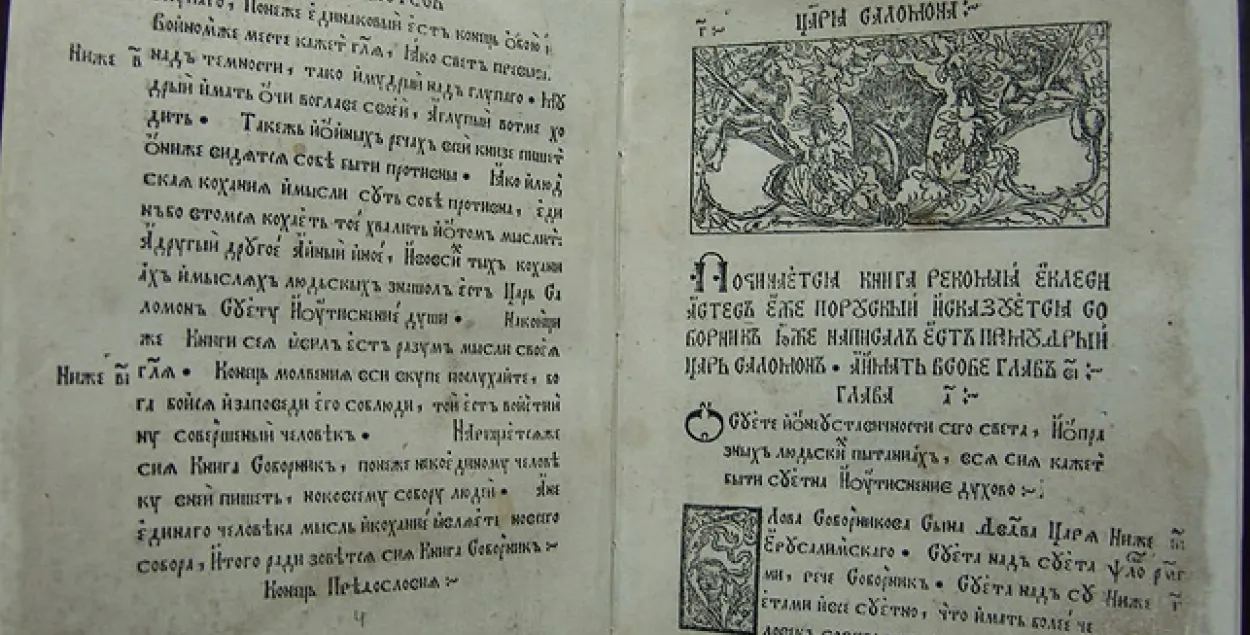 Понеже единаковый естъ конець обою и
войномже месте кажетъ гл҃я, Яко светъ
Ниже в҃
надъ темности, тако ймудрый надъ глупаго • Му
дрый ймать очи воглаве своей, Аглупый вотме хо
дить • Такежь йойныхъ речахъ сей книзе пишетъ
Ониже видятся собѣ быти противны • Яко йлюд
ская кохания ймысли суть собѣ противна, еди
нъбо втомся кохаеть тое хвалить йотомъ мыслить
Адругый другое Айный йное, Ивовси тыхъ кохани
ахъ ймысляхъ людьскыхъ знашолъ естъ Царь Са
ломонъ Суету Йоутиснение души • Наконци
же Книги сея ѝсилъ естъ разумъ мысли своея
Ниже в҃і
гл҃я • Конець молвения вси вкупе послухайте, бо
га бойся йзаповеди его соблюди, той естъ войстин
ну совершеный человекъ • Нарицаетсяже
сия Книга Соборникъ, понеже некоединому человѣ
ку вней пишеть, нововсему собору людей • Ане
единаго человѣка мысль йкохание ѝвляеть новсего
собора, Итого ради зоветься сия Книга Соборникъ :~
Конець Предословия :~
г҃ :~
царя саломона :~
Починается книга рекомая еклеси
астесъ еже поруский исказуется со
борникъ юже написалъ естъ премудрый
царь саломонъ • Аймать всобе главъ в҃і :~
глава а҃ :~
О суете йонеуставичности сего света, Йопра
зныхъ людьски пытаниахъ, вся сия кажетъ
быти суетна Йоутиснение духово :~
Слова Соборникова Сына Давыда Царя
Ерусалимскаго • Суета надъ суета
ми, рече Соборникъ • Суета надъ су
етами ѝвсе суетно, что ймать более че
Ниже
Ниже